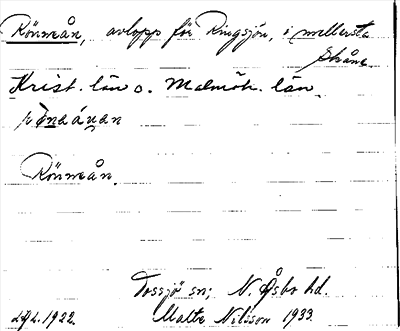 Rönneån, avlopp för Ringsjön, i mellersta
Skåne
Krist. län o. Malmöh. län.
Rönneån.
Tossjö sn; N. Åsbo hd.
1922. Malte Nilsson 1933